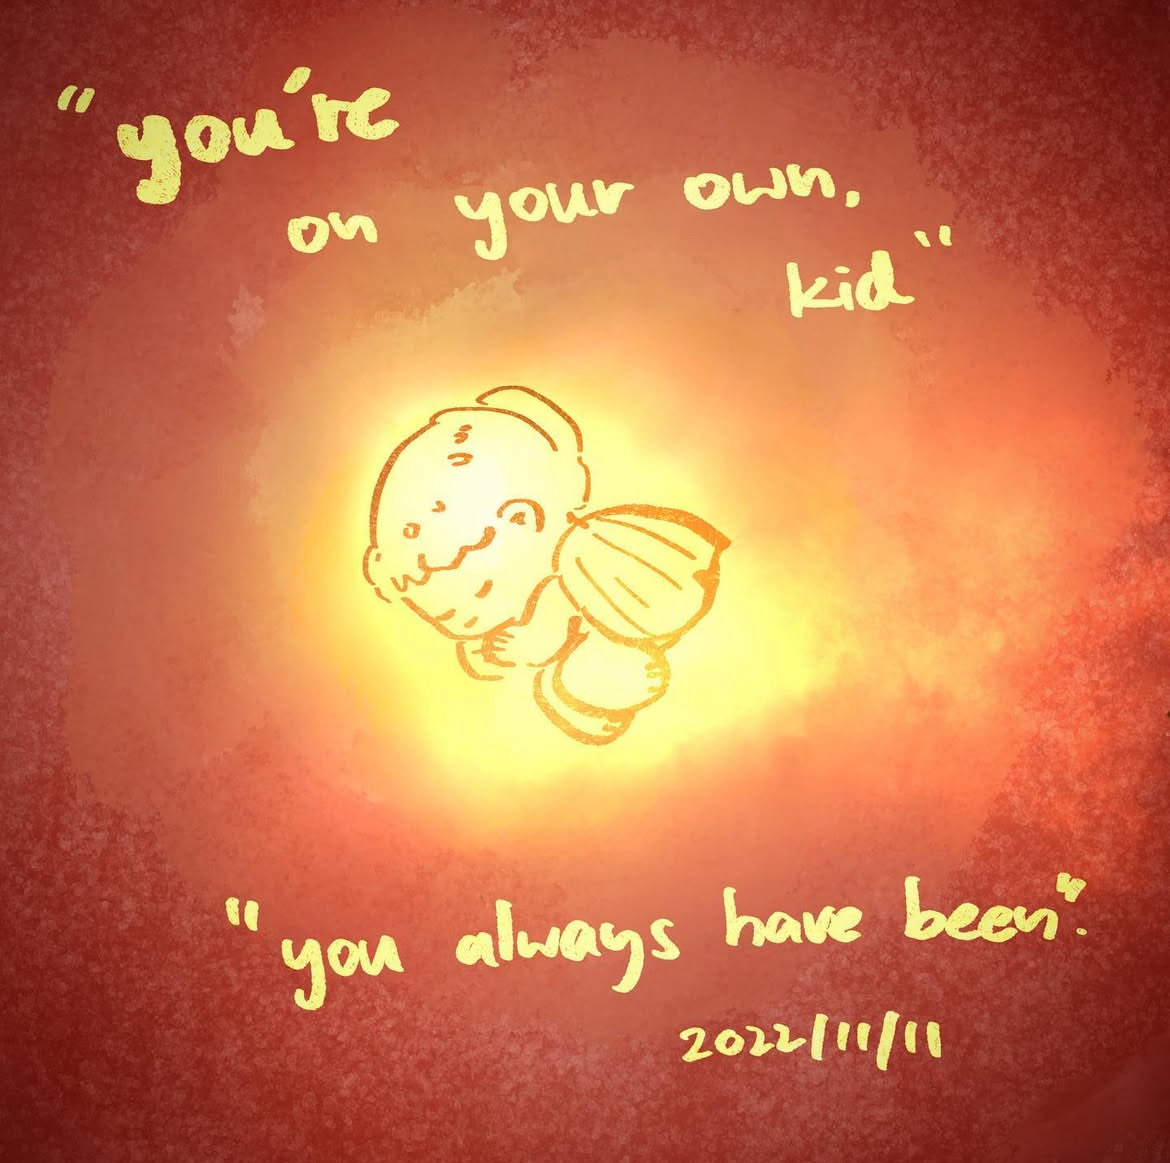 "you're
on your own,
kid"
"you always have been".
2022/11/11